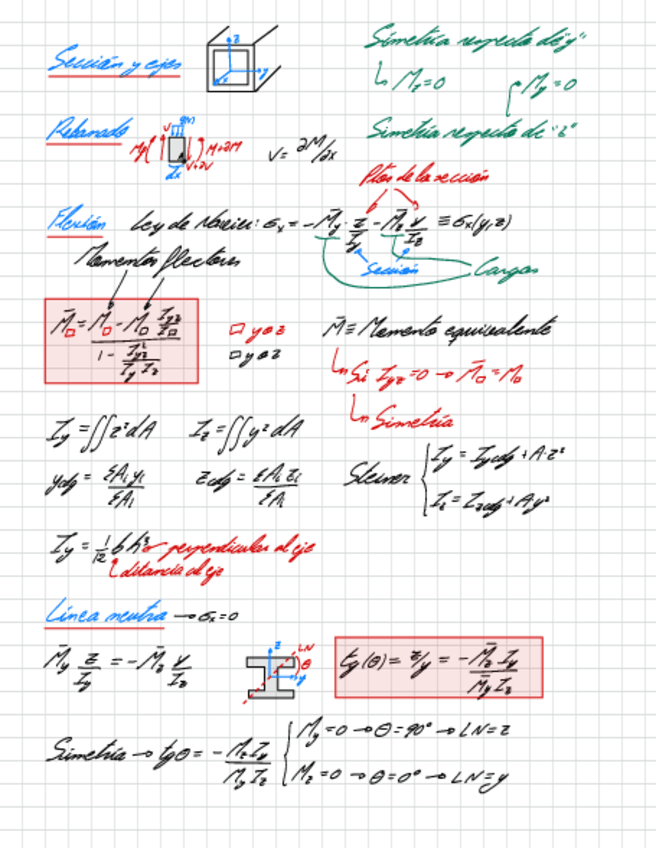 Sección y ejes
z
y
x
Simetría respecto de "y"
↳ Mz=0
My=0
Simetría respecto de "z"
Rebanada
V
M
M+∂M
V+∂V
dx
V = ∂M/∂x
Ptos de la sección
Flexión
Ley de Navier: σx = -M̄y · z/Iy - M̄z y/Iz ≡ σx(y,z)
Sección
Cargas
Momentos flectores
M̄□ = (M□ - M□ Iyz/I□) / (1 - Iyz²/(Iy Iz))
□ y o z
□ y o z
M̄ ≡ Momento equivalente
↳ Si Iyz=0 → M̄□ = M□
↳ Simetría
Iy = ∬z²dA
Iz = ∬y²dA
ycdg = ΣAi yi/ΣAi
zcdg = ΣAi zi/ΣAi
Steiner { Iy = Iycdg + A·z²
Iz = Izcdg + A y²
Iy = 1/12 b h³ → perpendicular al eje
distancia al eje
Línea neutra → σx=0
M̄y z/Iy = -M̄z y/Iz
z
LN
θ
y
tg(θ) = z/y = -M̄z Iy/(M̄y Iz)
Simetría → tgθ = -Mz Iy/(My Iz) { My=0 → θ=90° → LN=z
Mz=0 → θ=0° → LN=y